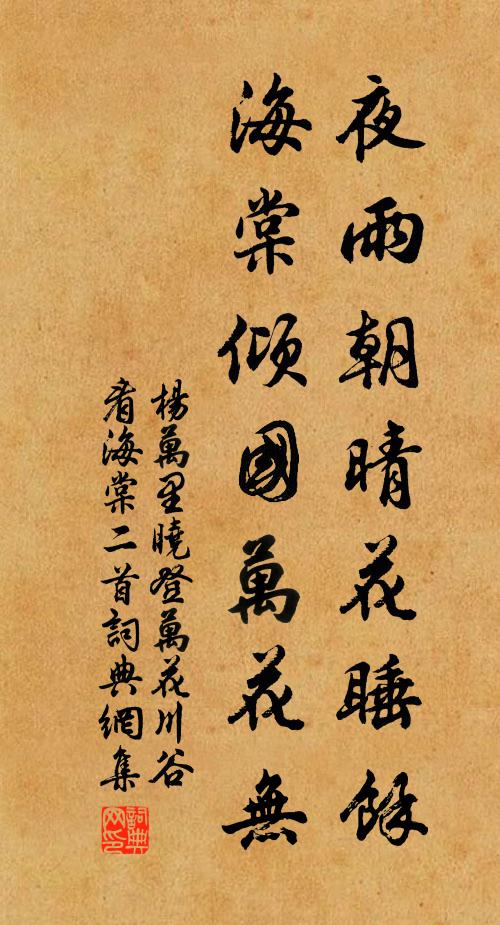 夜雨朝晴花睡餘
海棠傾國萬花無
楊萬里曉登萬花川谷
看海棠二首詞典網集
詞典
网印